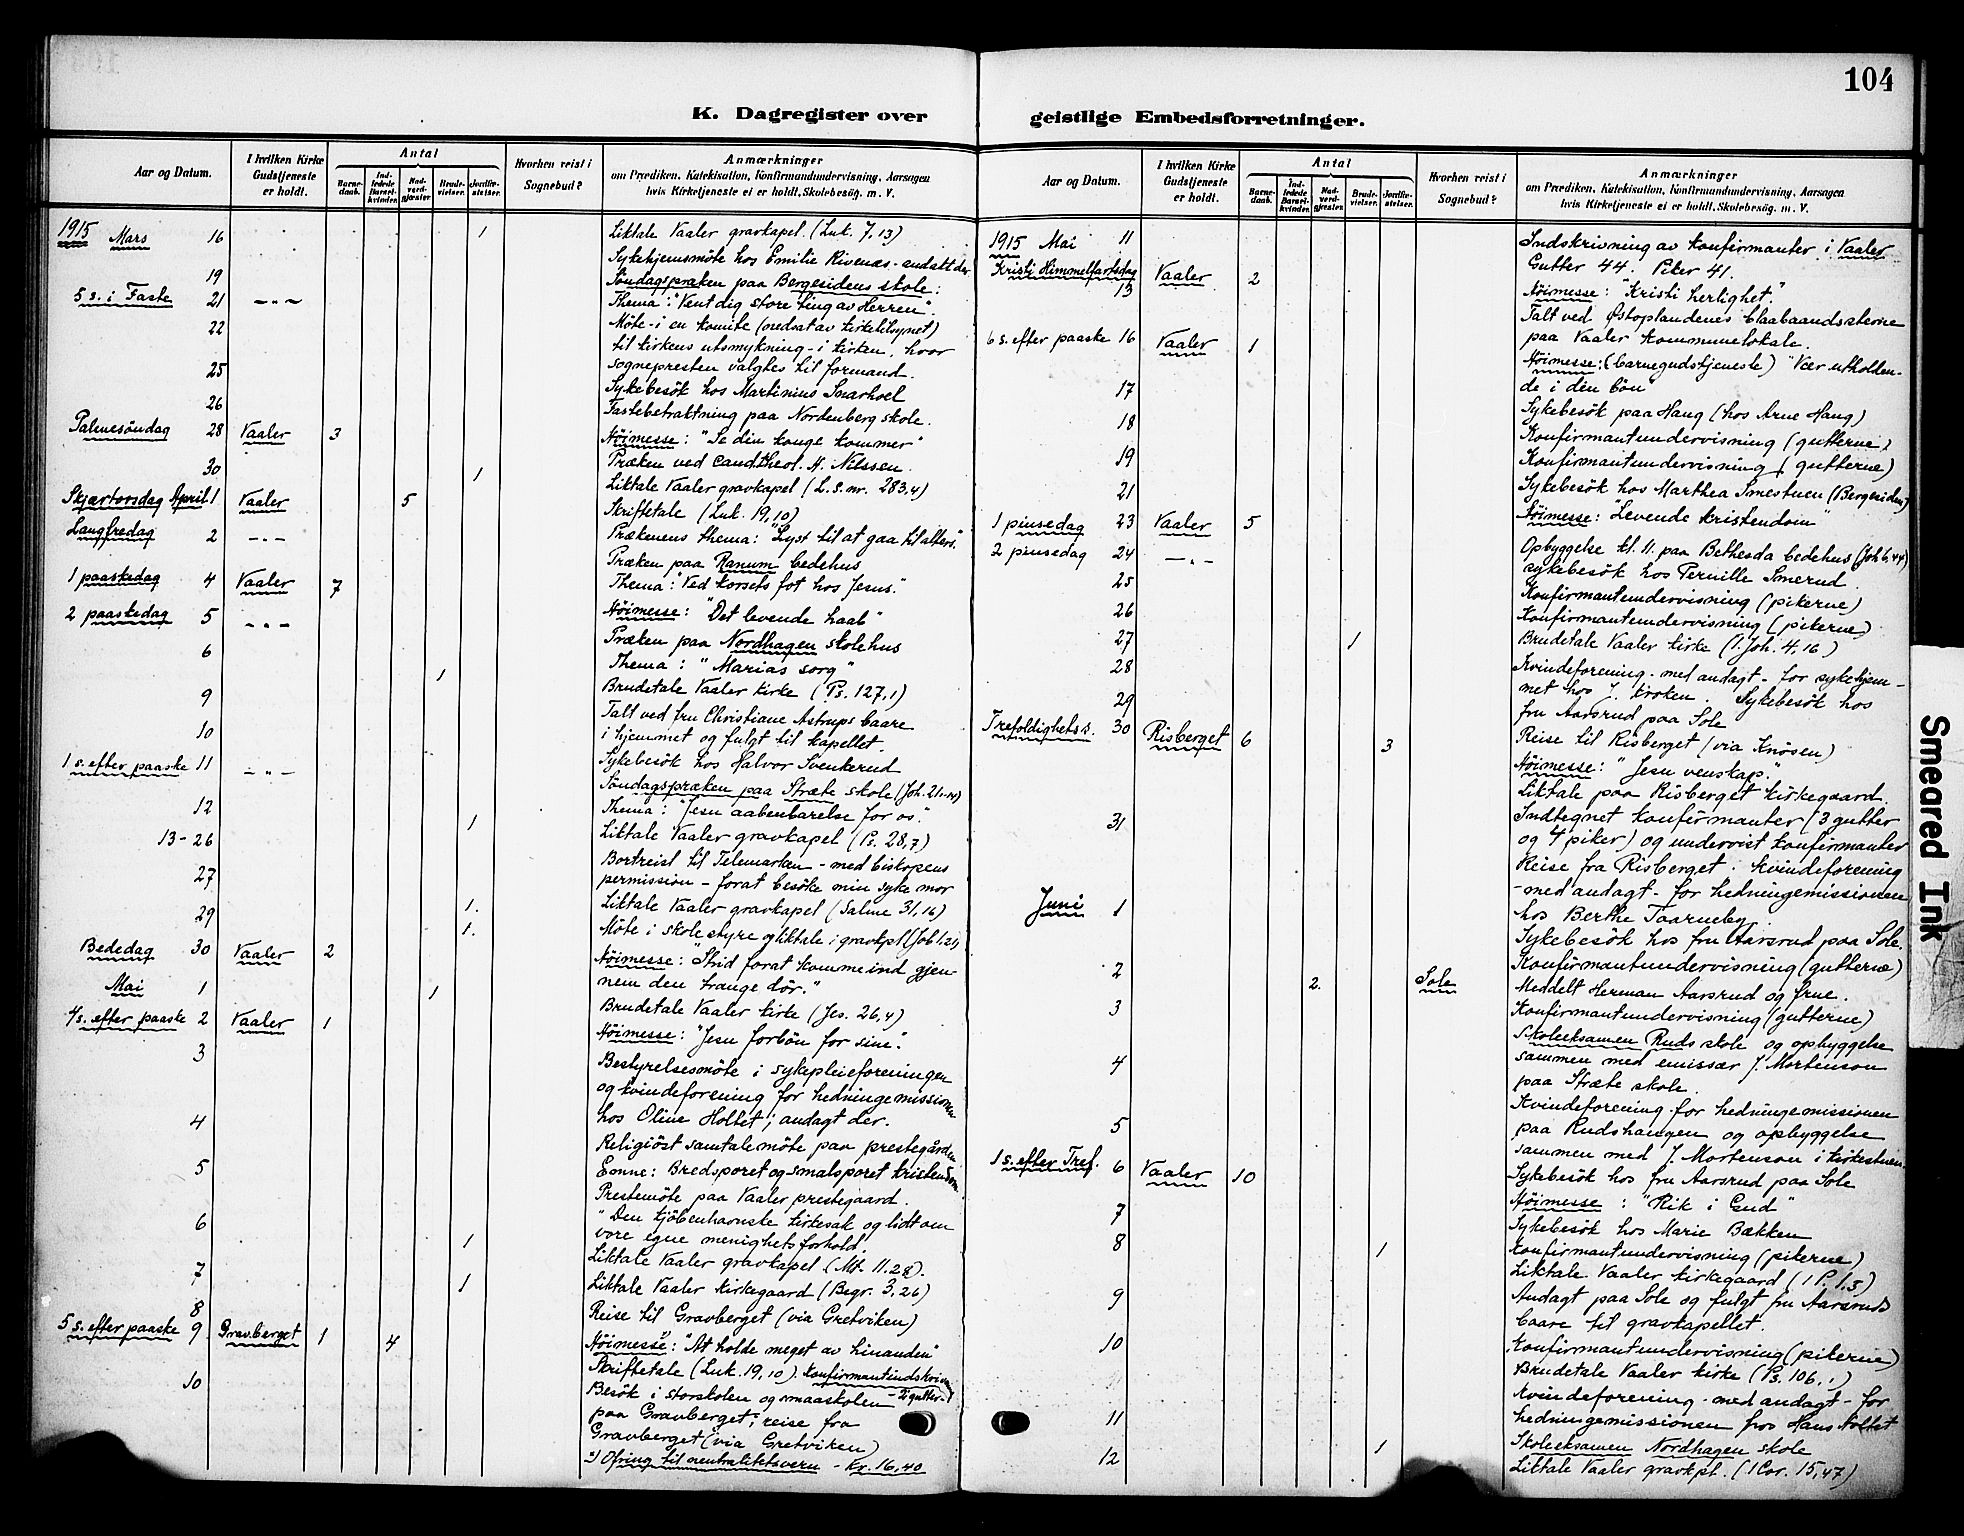 104
K. Dagregister over
geistlige Embedsforretninger.
Aar og Datum.
I hvilken Kirke Gudstjeneste er holdt.
Antal
Barnedaab.
Indledede Barselkvinder.
Nadverdgjæster.
Brudevielser.
Jordfæstelser.
Hvorhen reist i Sognebud?
Anmærkninger
om Prædiken, Katekisation, Konfirmandundervisning, Aarsagen
hvis Kirketjeneste ei er holdt, Skolebesög. m. V.
1915 Mars 16 1 Liktale Vaaler gravkapel. (Luk. 7,13)
Sykehjemsmöte hos Emilie Rivenæs - andakt der
19 Söndagspræken paa Bergesidens skole:
5 s. i Faste 21 Thema: "Vent dig store ting av Herren".
22 Möte i en komite (nedsat av kirketilsynet)
til kirkens utsmykning - i kirken, hvor
25 sognepresten valgtes til formand.
Sykebesök hos Martinius Snarhoel
26 Fastebetraktning paa Nordenberg skole.
Palmesöndag 28 Vaaler 3 Höimesse: "Se din konge kommer"
Præken ved cand. theol. H. Nilssen.
30 1 Liktale Vaaler gravkapel (L.s. nr. 283,4)
Skjærtorsdag April 1 Vaaler 5 Skriftetale (Luk. 19,10)
Langfredag 2 Prækenens thema: "Lyst til at gaa til alters".
Præken paa Ranum bedehus
1 paaskedag 4 Vaaler 7 Thema: "Ved korsets fot hos Jesus".
2 paaskedag 5 Höimesse: "Det levende haab"
Præken paa Nordhagen skolehus
6 Thema: "Marias sorg"
1 Brudetale Vaaler kirke (Ps. 127,1)
9 Talt ved fru Christiane Astrups baare
10 i hjemmet og fulgt til kapellet.
1 s. efter paaske 11 Sykebesök hos Halvor Svenkerud
Söndagspræken paa Stræte skole (Joh. 21,1-14)
12 Thema: "Jesu aabenbarelse for os".
13-26 1 Liktale Vaaler gravkapel (Ps. 28,7)
Bortreist til Telemarken - med biskopens
27 permission - forat besöke min syke mor
1. Liktale Vaaler gravkapel (Salme 31,16)
29 1. Möte i skolestyre og liktale i gravkpl (Job 1,21)
Bededag 30 Vaaler 2 Höimesse: "Strid forat komme ind gjen-
nem den trange dör."
Mai 1 1 Brudetale Vaaler kirke (Jes. 26,4)
4 s. efter paaske 2 Vaaler 1 Höimesse: "Jesu forbön for sine".
3 Bestyrelsesmöte i sykepleieforeningen
og kvindeforening for hedningemissionen
4 hos Oline Holtet; andagt der.
Religiöst samtalemöte paa prestegården
5 Emne: Bredsporet og smalsporet kristendom
Prestemöte paa Vaaler prestegaard.
6 "Den kjöbenhavnske kirkesak og lidt om
vore egne menighetsforhold.
1 Liktale Vaaler gravkapel (Mt. 11.28).
7 1 Liktale Vaaler kirkegaard (Begr. 3,26)
8 Reise til Gravberget (via Gretviken)
5 s. efter paaske 9 Gravberget 1 4 Höimesse: "At holde meget av hinanden"
Skriftetale (Luk. 19,10). Konfirmantindskrivn.
10 Besök i storskolen og smaaskolen - 2 gutter.
paa Gravberget; reise fra
Gravberget (via Gretviken)
Ofring til neutralitetsvern - Kr. 16,40
1915 Mai 11 Indskrivning av konfirmanter i Vaaler
Gutter 44. Piker 41.
Kristi Himmelfartsdag 13 Vaaler 2 Höimesse: "Kristi herlighet".
Talt ved Östoplandenes blaabaandsstevne
paa Vaaler kommunelokale.
6 s. efter paaske 16 Vaaler 1 Höimesse: (barnegudstjeneste) "Vær utholden-
de i den bön"
17 Sykebesök paa Haug (hos Arne Haug)
18 Konfirmantundervisning (gutterne)
19 Konfirmantundervisning (gutterne)
21 Sykebesök hos Marthea Smestuen (Bergesiden)
1 pinsedag 23 Vaaler 5 Höimesse: Levende kristendom"
2 pinsedag 24 Opbyggelse kl. 11. paa Bethesda bedehus (Joh 6,44)
Sykebesök hos Pernille Smerud
25 Konfirmantundervisning (pikerne)
26 Konfirmantundervisning (pikerne)
27 1 Brudetale Vaaler kirke (1. Joh. 4,16)
28 Kvindeforening - med andagt - for sykehjem-
met hos J. Kroken. Sykebesök hos
29 fru Aarsrud paa Sole
Trefoldighetss. 30 Risberget 6 3 Reise til Risberget (via Knösen)
Höimesse: "Jesu venskap."
Liktale paa Risberget kirkegaard.
31 Indtegnet konfirmanter (3 gutter
og 4 piker) og undervist konfirmanter
Reise fra Risberget. Kvindeforening
- med andagt - for hedningemissionen
Juni 1 hos Berthe Taarneby.
Sykebesök hos fru Aarsrud paa Sole.
2 Konfirmantundervisning (gutterne)
2. Sole Meddelt Herman Aarsrud og frue.
3 Konfirmantundervisning (gutterne)
Skoleeksamen Ruds skole og opbyggelse
4 sammen med emissær J. Mortenson
paa Stræte skole.
Kvindeforening for hedningemissionen
5 paa Rudshaugen og opbyggelse
sammen med J. Mortenson i kirkestuen.
1 s. efter Tref. 6 Vaaler 10 Sykebesök hos fru Aarsrud paa Sole
Höimesse: "Rik i Gud"
7 Sykebesök hos Marie Bækken
8 Konfirmantundervisning (pikerne)
1 Liktale Vaaler kirkegaard (1 P. 1,3)
9 Andagt paa Sole og fulgt fru Aarsruds
baare til gravkapellet.
10 Konfirmantundervisning (pikerne)
Brudetale Vaaler kirke (Ps. 106,1)
Kvindeforening - med andagt - for
11 hedningemissionen hos Hans Holtet
Skoleeksamen Nordhagen skole
12 1 Liktale Vaaler gravkpl. (1 Cor. 15,47)
Smeared Ink